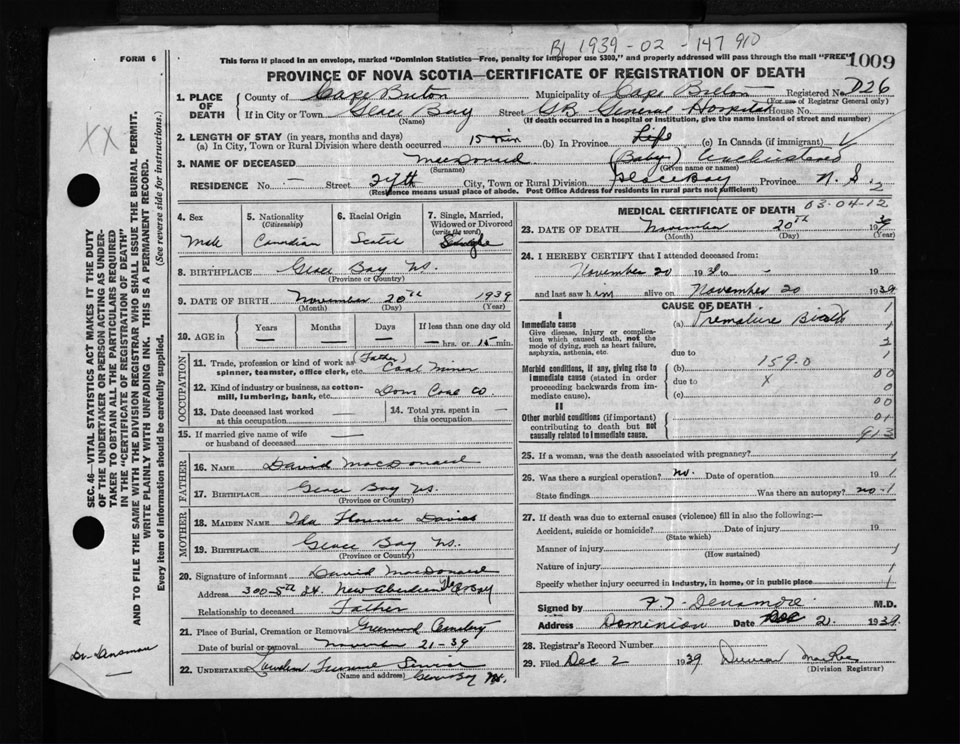 B1 1939-02-147910
FORM 6
This form if placed in an envelope, marked "Dominion Statistics—Free, penalty for improper use $300," and properly addressed will pass through the mail "FREE"
1009
PROVINCE OF NOVA SCOTIA—CERTIFICATE OF REGISTRATION OF DEATH
1. PLACE OF DEATH County of Cape Breton Municipality of Cape Breton Registered No. D26
(For use of Registrar General only)
If in City or Town Glace Bay Street GB General Hospital House No.
(Name) (If death occurred in a hospital or institution, give the name instead of street and number)
2. LENGTH OF STAY (in years, months and days)
(a) In City, Town or Rural Division where death occurred 15 min (b) In Province Life (c) In Canada (if immigrant)
3. NAME OF DECEASED MacDonald (Baby)
(Surname) (Given name or names)
RESIDENCE No. — Street City, Town or Rural Division Glace Bay Province N. S. 2
(Residence means usual place of abode. Post Office Address for residents in rural parts not sufficient)
XX
SEC. 46—VITAL STATISTICS ACT MAKES IT THE DUTY
OF THE UNDERTAKER OR PERSON ACTING AS UNDER-
TAKER TO OBTAIN ALL THE PARTICULARS REQUIRED
IN THE "CERTIFICATE OF REGISTRATION OF DEATH"
AND TO FILE THE SAME WITH THE DIVISION REGISTRAR WHO SHALL ISSUE THE BURIAL PERMIT.
WRITE PLAINLY WITH UNFADING INK. THIS IS A PERMANENT RECORD.
Every item of information should be carefully supplied. (See reverse side for instructions.)
4. Sex
Male
5. Nationality
(Citizenship)
Canadian
6. Racial Origin
Scotch
7. Single, Married,
Widowed or Divorced
(write the word)
Single
8. BIRTHPLACE Glace Bay NS.
(Province or Country)
9. DATE OF BIRTH November 20th 1939
(Month) (Day) (Year)
10. AGE in Years — Months — Days — If less than one day old
— hrs. or 15 min.
OCCUPATION
11. Trade, profession or kind of work as (Father)
spinner, teamster, office clerk, etc. Coal Miner
12. Kind of industry or business, as cotton-
mill, lumbering, bank, etc. Dom Coal Co.
13. Date deceased last worked
at this occupation —
14. Total yrs. spent in
this occupation —
15. If married give name of wife
or husband of deceased —
FATHER
16. NAME David MacDonald
17. BIRTHPLACE Glace Bay NS.
(Province or Country)
MOTHER
18. MAIDEN NAME Ida Florence Davies
19. BIRTHPLACE Glace Bay NS.
(Province or Country)
20. Signature of informant David MacDonald
Address 300-8th St. New Aberdeen
Relationship to deceased Father
21. Place of Burial, Cremation or Removal Greenwood Cemetery
Date of burial or removal November 21-39
22. UNDERTAKER Glace Bay NS.
(Name and address)
MEDICAL CERTIFICATE OF DEATH 03-04-12
23. DATE OF DEATH November 20th 39
(Month) (Day) (Year)
24. I HEREBY CERTIFY that I attended deceased from:
November 20 19 39 to - 19
and last saw him alive on November 20 1939
CAUSE OF DEATH
I
Immediate cause (a) Premature Birth 1
Give disease, injury or complica-
tion which caused death, not the
mode of dying, such as heart failure,
asphyxia, asthenia, etc.
due to
Morbid conditions, if any, giving rise to
immediate cause (stated in order
proceeding backwards from im-
mediate cause).
(b) 159.0
due to X 00
(c)
II 00
Other morbid conditions (if important)
contributing to death but not
causally related to immediate cause.
913
25. If a woman, was the death associated with pregnancy?
26. Was there a surgical operation? no. Date of operation 19 1
State findings Was there an autopsy? no-1
27. If death was due to external causes (violence) fill in also the following:—
Accident, suicide or homicide? Date of injury 19
(State which)
Manner of injury
(How sustained)
Nature of injury
Specify whether injury occurred in industry, in home, or in public place
Signed by M.D.
Address Dominion Date Dec 2. 1939.
28. Registrar's Record Number
29. Filed Dec 2 1939
(Division Registrar)